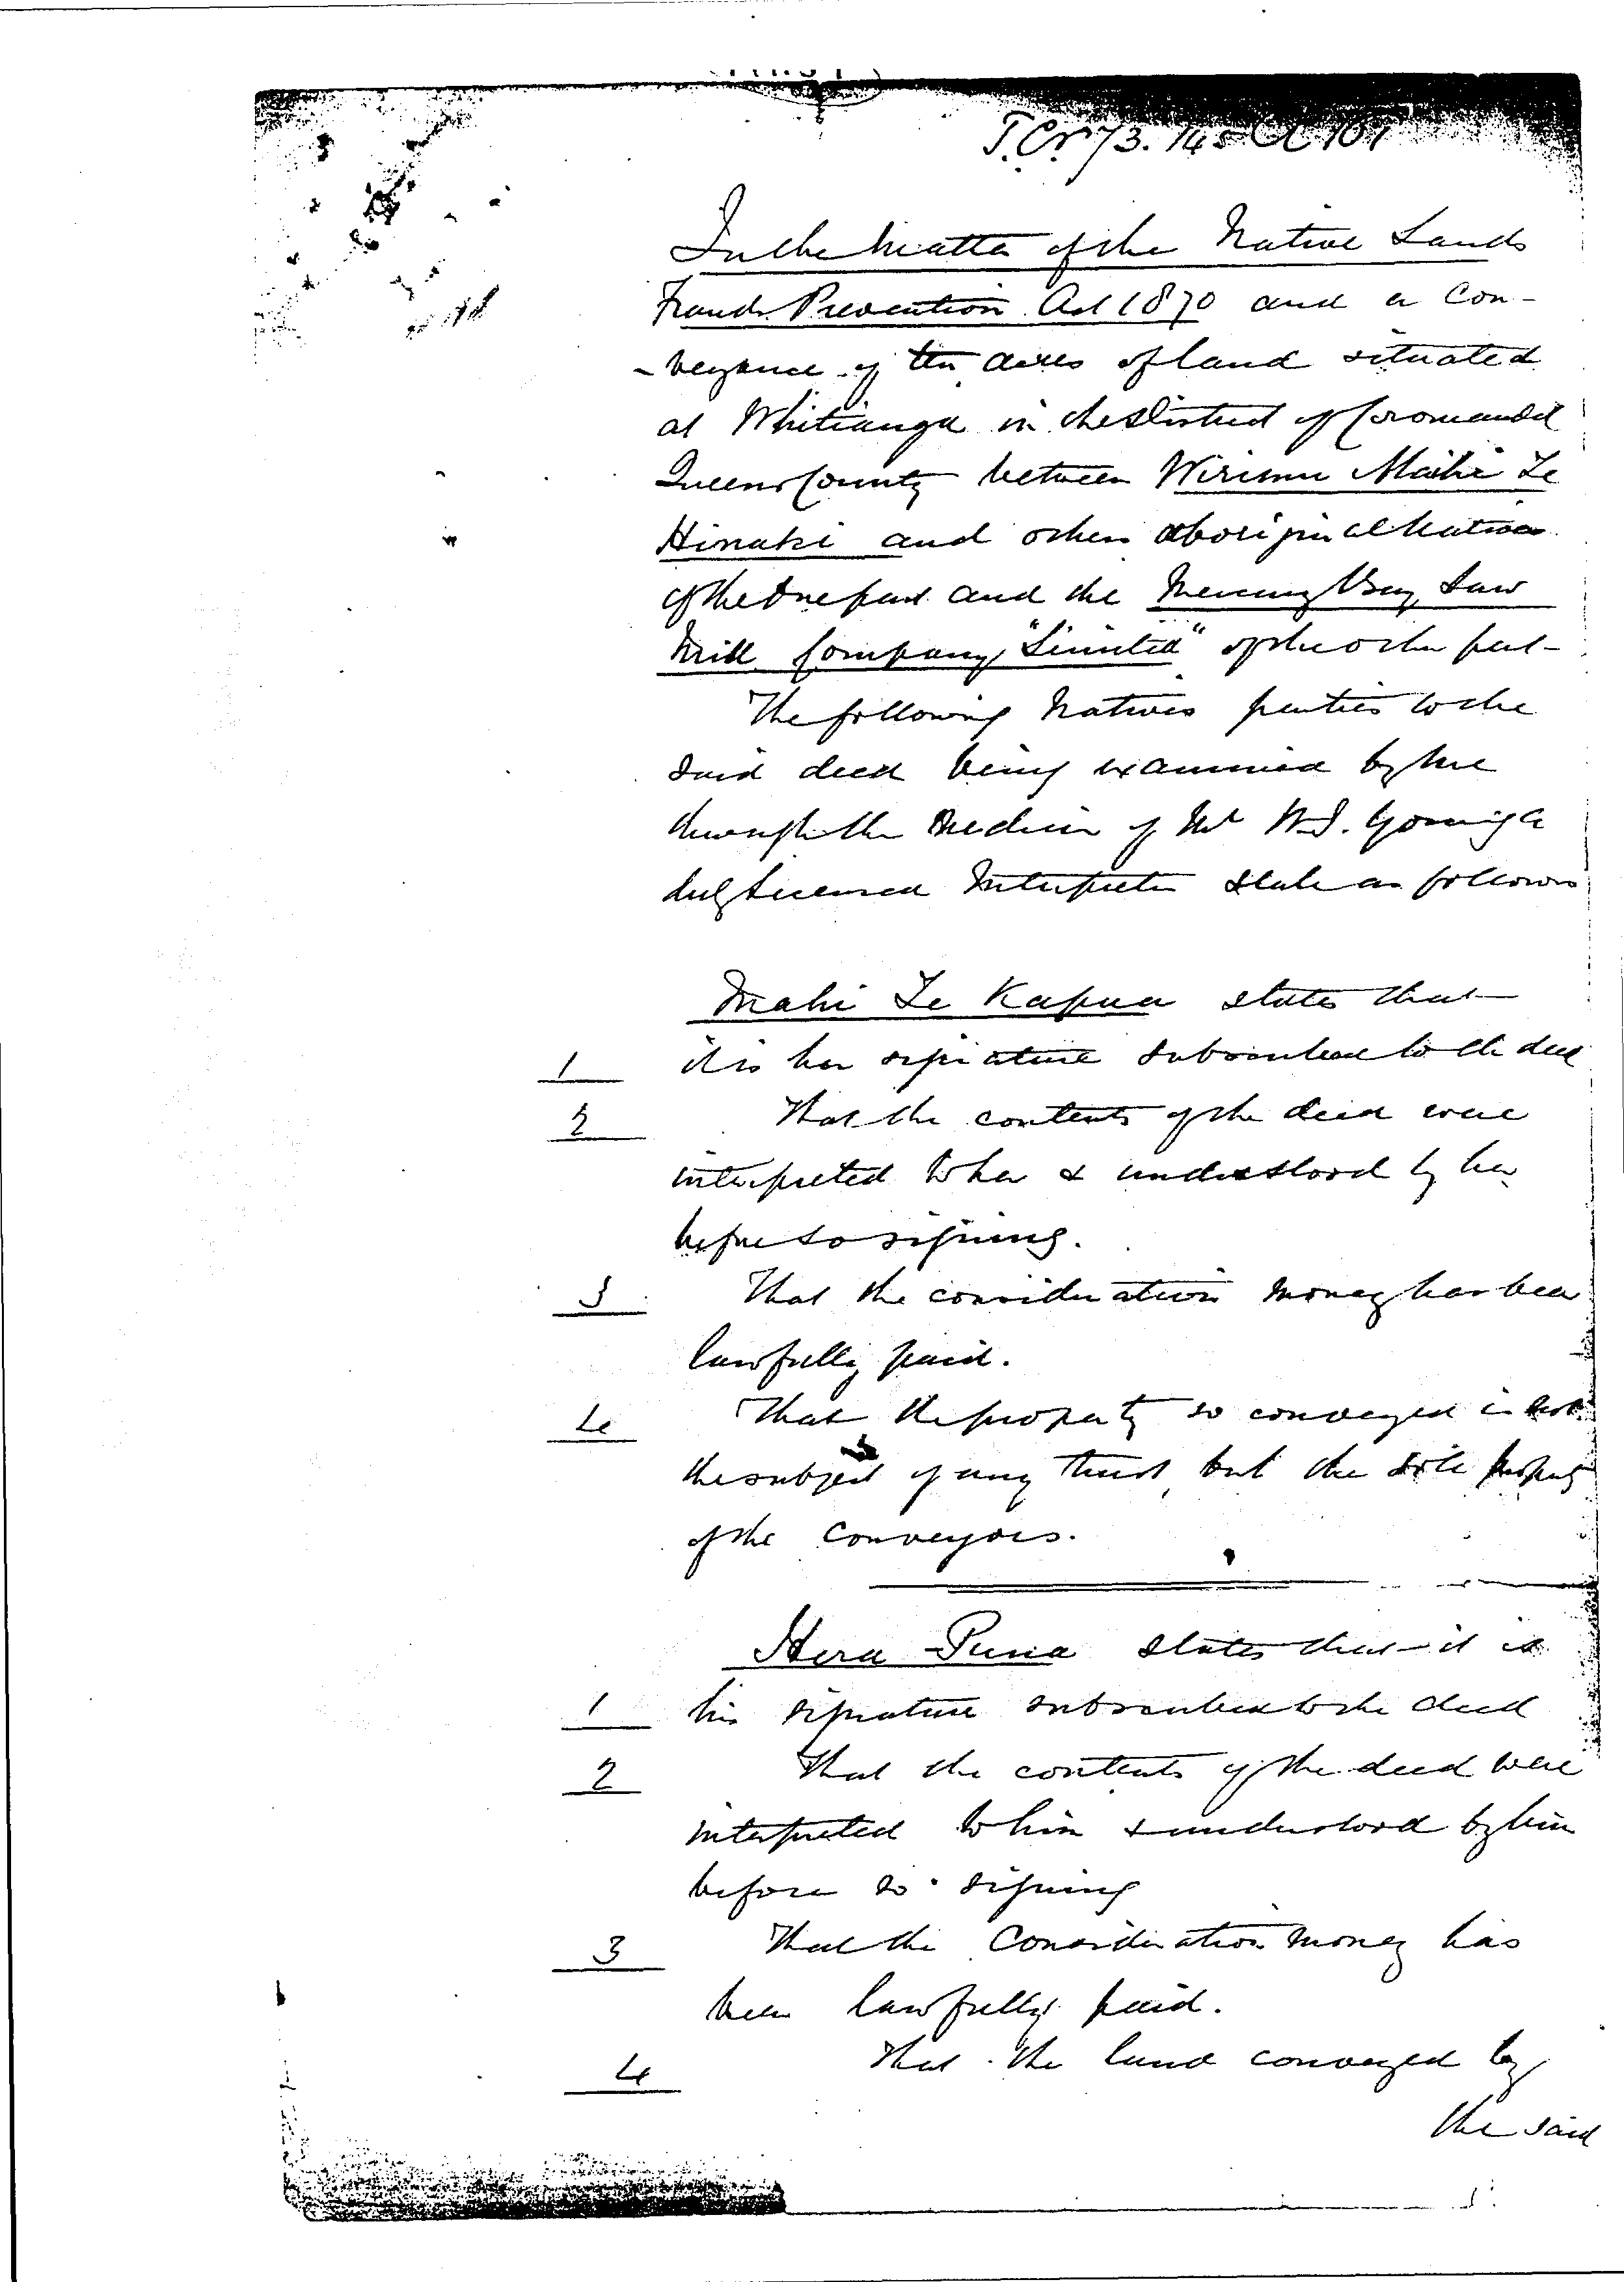 In the Matter of the Native Lands
Frauds Prevention Act 1870 and a Con-
-veyance of ten acres of land situated
at Whitianga in the District of Coromandel
Queens County between Wiremu Maihi Te
Hinaki and others aboriginal Natives
of the One part and the Mercury Bay Saw
Mill Company "Limited" of the other part -
The following Natives parties to the
said deed being examined by me
through the Medium of Mr W.I. Young a
duly licensed Interpreter state as follows
Mahi Te Kapua states that
1 it is her signature subscribed to the deed
2 That the contents of the deed were
interpreted to her & understood by her
before so signing.
3 That the consideration money has been
lawfully paid.
4 That the property so conveyed is not
the subject of any trust but the sole property
of the conveyors.
Hera Puna states that it is
1 his signature subscribed to the deed
2 That the contents of the deed were
interpreted to him & understood by him
before so signing
3 That the Consideration money has
been lawfully paid.
4 That the land conveyed by
the said